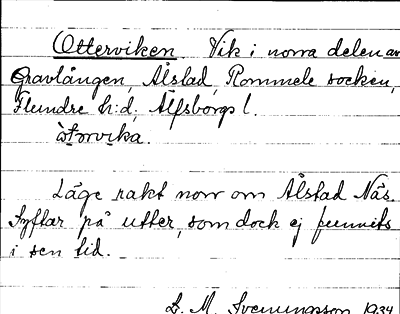 Otterviken. Vik i norra delen av
Gravlången, Ålstad, Rommele socken,
Flundre h:d, Älfsborgs l.
Läge rakt norr om Ålstad Näs.
Syftar på utter, som dock ej funnits
i sen tid.
D. M. Svenungsson 1934